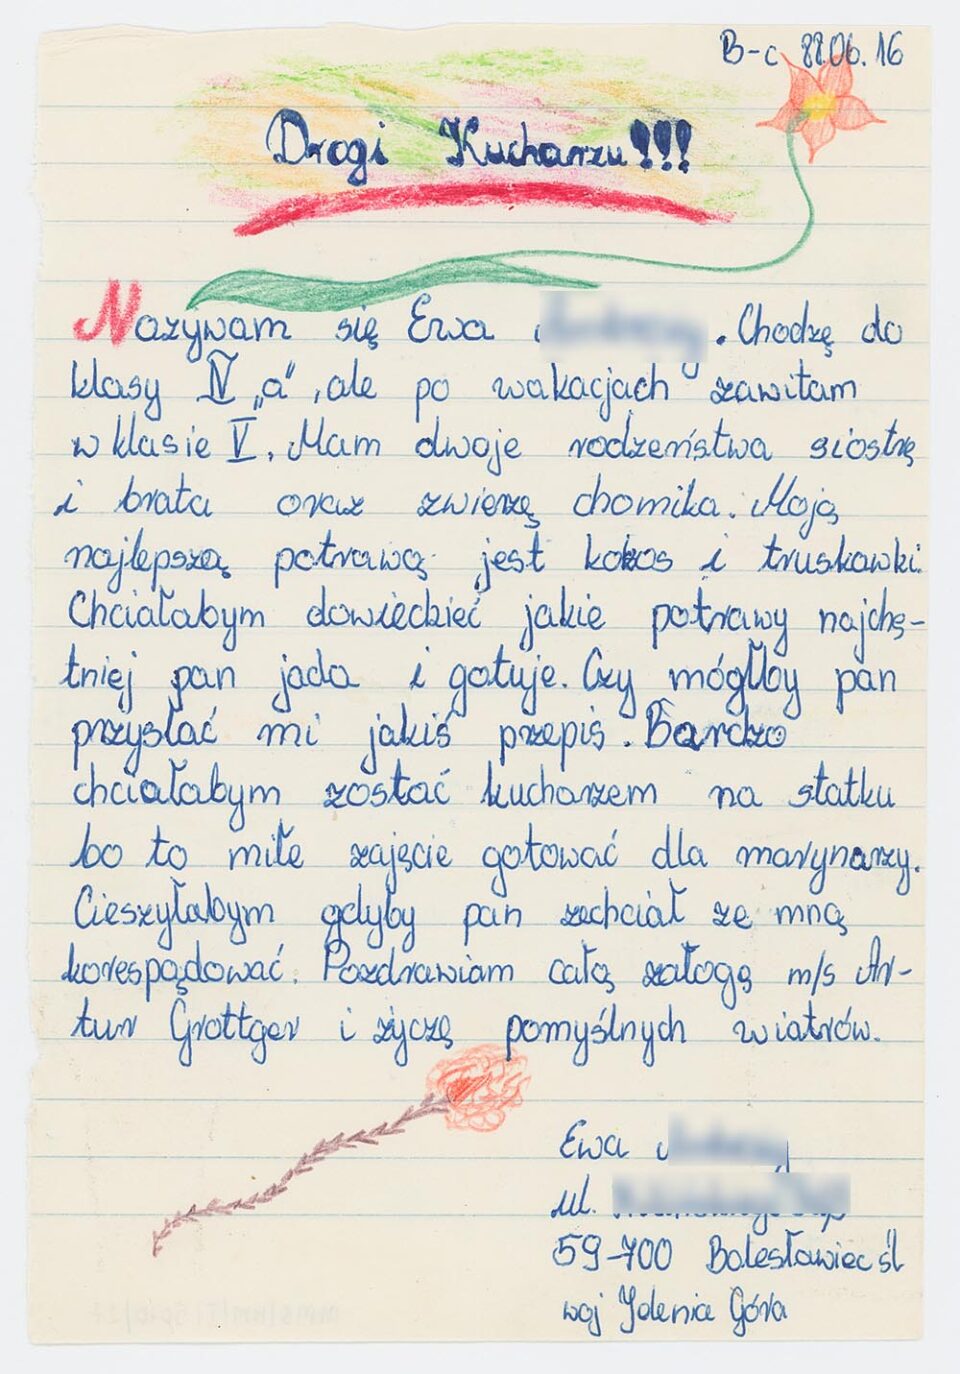 B-c 88.06.16
Drogi Kucharzu!!!
Nazywam się Ewa . Chodzę do
klasy IV „a”, ale po wakacjach zawitam
w klasie V. Mam dwoje rodzeństwa siostrę
i brata oraz zwierzę chomika. Moją
najlepszą potrawą jest kokos i truskawki.
Chciałabym dowiedzieć jakie potrawy najchę-
tniej pan jada i gotuje. Czy mógłby pan
przysłać mi jakiś przepis. Bardzo
chciałabym zostać kucharzem na statku
bo to miłe zajęcie gotować dla marynarzy.
Cieszyłabym gdyby pan zechciał ze mną
korespądować. Pozdrawiam całą załogę m/s Ar-
tur Grottger i życzę pomyślnych wiatrów.
Ewa
ul.
59-700 Bolesławiec śl
woj Jelenia Góra